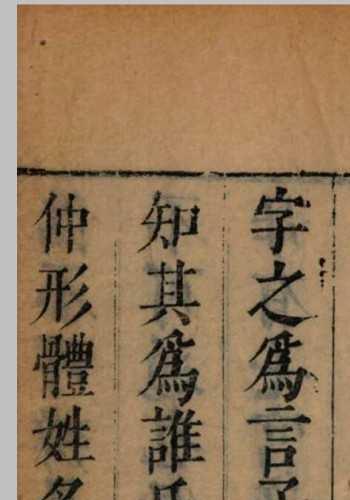 字之爲言
知其爲誰
仲形體姓